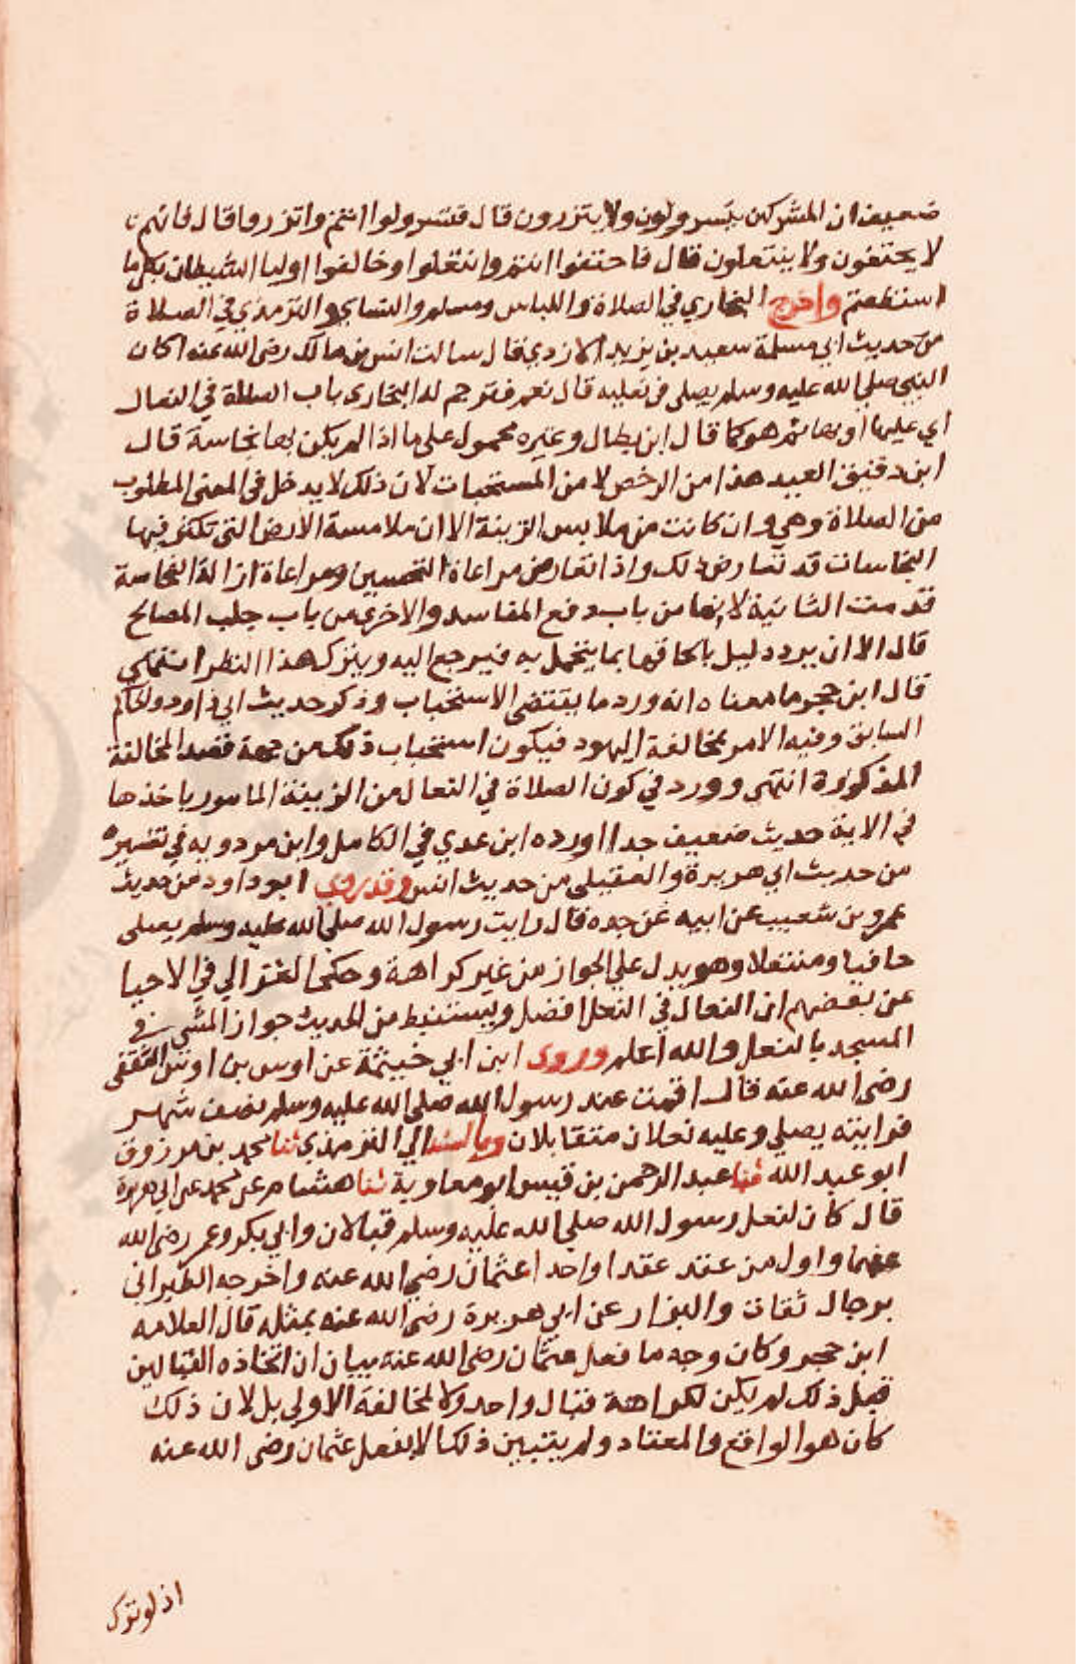 ضعيف ان المشركين يتسرولون ولا يتزرون قال فتسرولوا انتم واتزروا قال فانهم
لا يحتفون ولا ينتعلون قال فاحتفوا انتم وانتعلوا وخالفوا اوليا الشيطان بكل ما
استطعتم واخرج البخاري في الصلاة واللباس ومسلم والنساي والترمذي في الصلاة
من حديث ابي مسلمة سعيد بن يزيد الازدي قال سالت انس بن مالك رضى الله عنه اكان
النبى صلى الله عليه وسلم يصلى فى نعليه قال نعم فترجم له البخارى باب الصلاة في النعال
اي عليها او بها ثم هو كما قال ابن بطال وغيره محمول على ما اذا لم يكن بها نجاسة قال
ابن دقيق العيد هذا من الرخص لا من المستحبات لان ذلك لا يدخل فى المعنى المطلوب
من الصلاة وهي وان كانت من ملابس الزينة الا ان ملامسة الارض التى تكثر فيها
النجاسات قد تعارض ذلك واذا تعارض مراعاة التحسين ومراعاة ازالة النجاسة
قدمت الثانية لانها من باب دفع المفاسد والاخرى من باب جلب المصالح
قال الا ان يرد دليل بالحاقها بما يتجمل به فيرجع اليه ويترك هذا النظر انتهى
قال ابن حجر ما معناه انه ورد ما يقتضى الاستحباب وذكر حديث ابي داود والحاكم
السابق وفيه الامر بمخالفة اليهود فيكون استحباب ذلك من جهة قصد المخالفة
المذكورة انتهى وورد في كون الصلاة في النعال من الزينة المامور باخذها
في الاية حديث ضعيف جدا اورده ابن عدي في الكامل وابن مردويه في تفسيره
من حديث ابي هريرة والعقيلى من حديث انس وقد روى ابو داود من حديث
عمرو بن شعيب عن ابيه عن جده قال رايت رسول الله صلى الله عليه وسلم يصلى
حافيا ومنتعلا وهو يدل على الجواز من غير كراهة وحكى الغزالي في الاحيا
عن بعضهم ان النعال في النعل افضل ويستنبط من الحديث جواز المشي في
المسجد بالنعل والله اعلم وروى ابن ابي خيثمة عن اوس بن اوس الثقفى
رضى الله عنه قال اقمت عند رسول الله صلى الله عليه وسلم نصف شهر
فرايته يصلي وعليه نعلان متقابلان وبالسند الي الترمذي ثنا محمد بن مرزوق
ابو عبد الله ثنا عبد الرحمن بن قيس ابو معاوية ثنا هشام عن محمد عن ابي هريرة
قال كان لنعل رسول الله صلى الله عليه وسلم قبالان وابي بكر وعمر رضى الله
عنهما واول من عقد عقدا واحدا عثمان رضى الله عنه واخرجه الطبراني
برجال ثقات والبزار عن ابي هريرة رضى الله عنه بمثله قال العلامه
ابن حجر وكان وجه ما فعل عثمان رضى الله عنه بيان ان اتخاذه القبالين
قبل ذلك لم يكن لكراهة قبال واحد ولا لمخالفة الاولى بل لان ذلك
كان هو الواقع والمعتاد ولم يتبين ذلك الا بفعل عثمان رضى الله عنه
اذ لو ترك